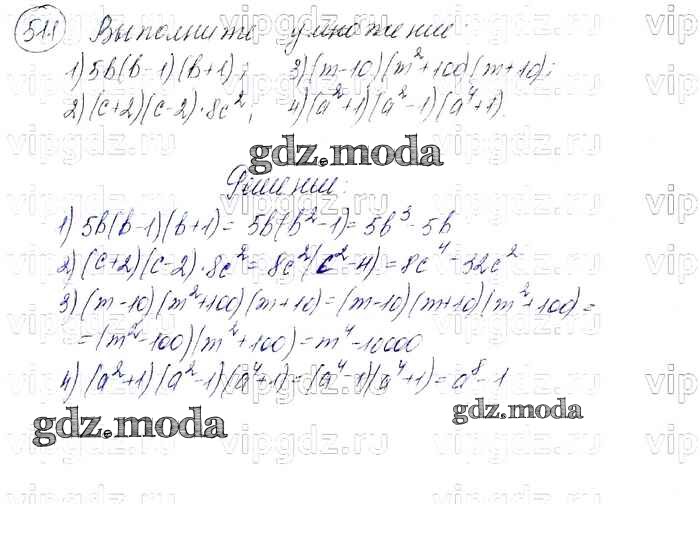 511 Выполните умножение:
1) 5b(b-1)(b+1); 3) (m-10)(m²+100)(m+10);
2) (c+2)(c-2)·8c²; 4) (a²+1)(a²-1)(a⁴+1).
gdz.moda
Решение:
1) 5b(b-1)(b+1) = 5b(b²-1) = 5b³-5b
2) (c+2)(c-2)·8c² = 8c²(c²-4) = 8c⁴-32c²
3) (m-10)(m²+100)(m+10) = (m-10)(m+10)(m²+100) =
= (m²-100)(m²+100) = m⁴-10000
4) (a²+1)(a²-1)(a⁴+1) = (a⁴-1)(a⁴+1) = a⁸-1
gdz.moda
gdz.moda
vipgdz.ru